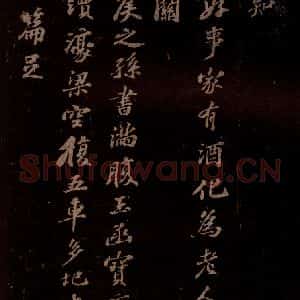 知
好事家有酒化為老
關
侯之孫書滿腹玉函寶
續濠梁空復五車多圯上
篇足
Shufawang.CN